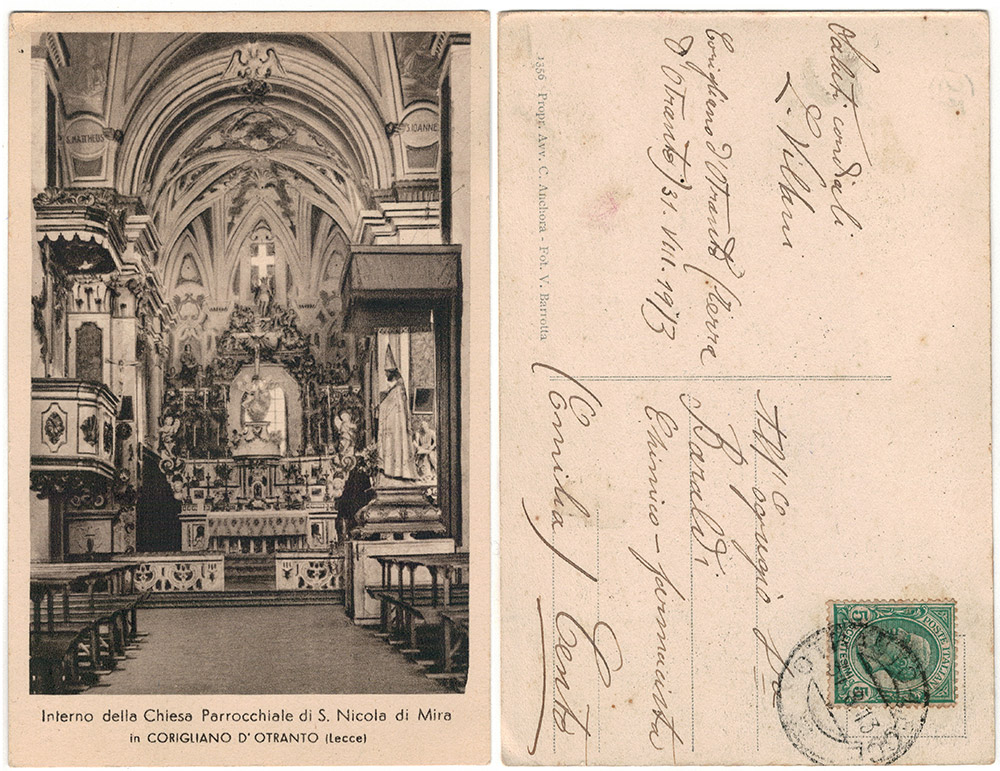 S. MATTHEUS
S. IOANNE
Interno della Chiesa Parrocchiale di S. Nicola di Mira
in CORIGLIANO D' OTRANTO (Lecce)
1356 Propr. Avv. C. Anchora - Fot. V. Barrotta
Saluti cordiali
L. Villani
Corigliano d'Otranto (Terra
d'Otranto) 31.VIII.1913
Baraldi
Chimico-farmacista
(Emilia) Cento
POSTE ITALIANE
5 CENTESIMI 5